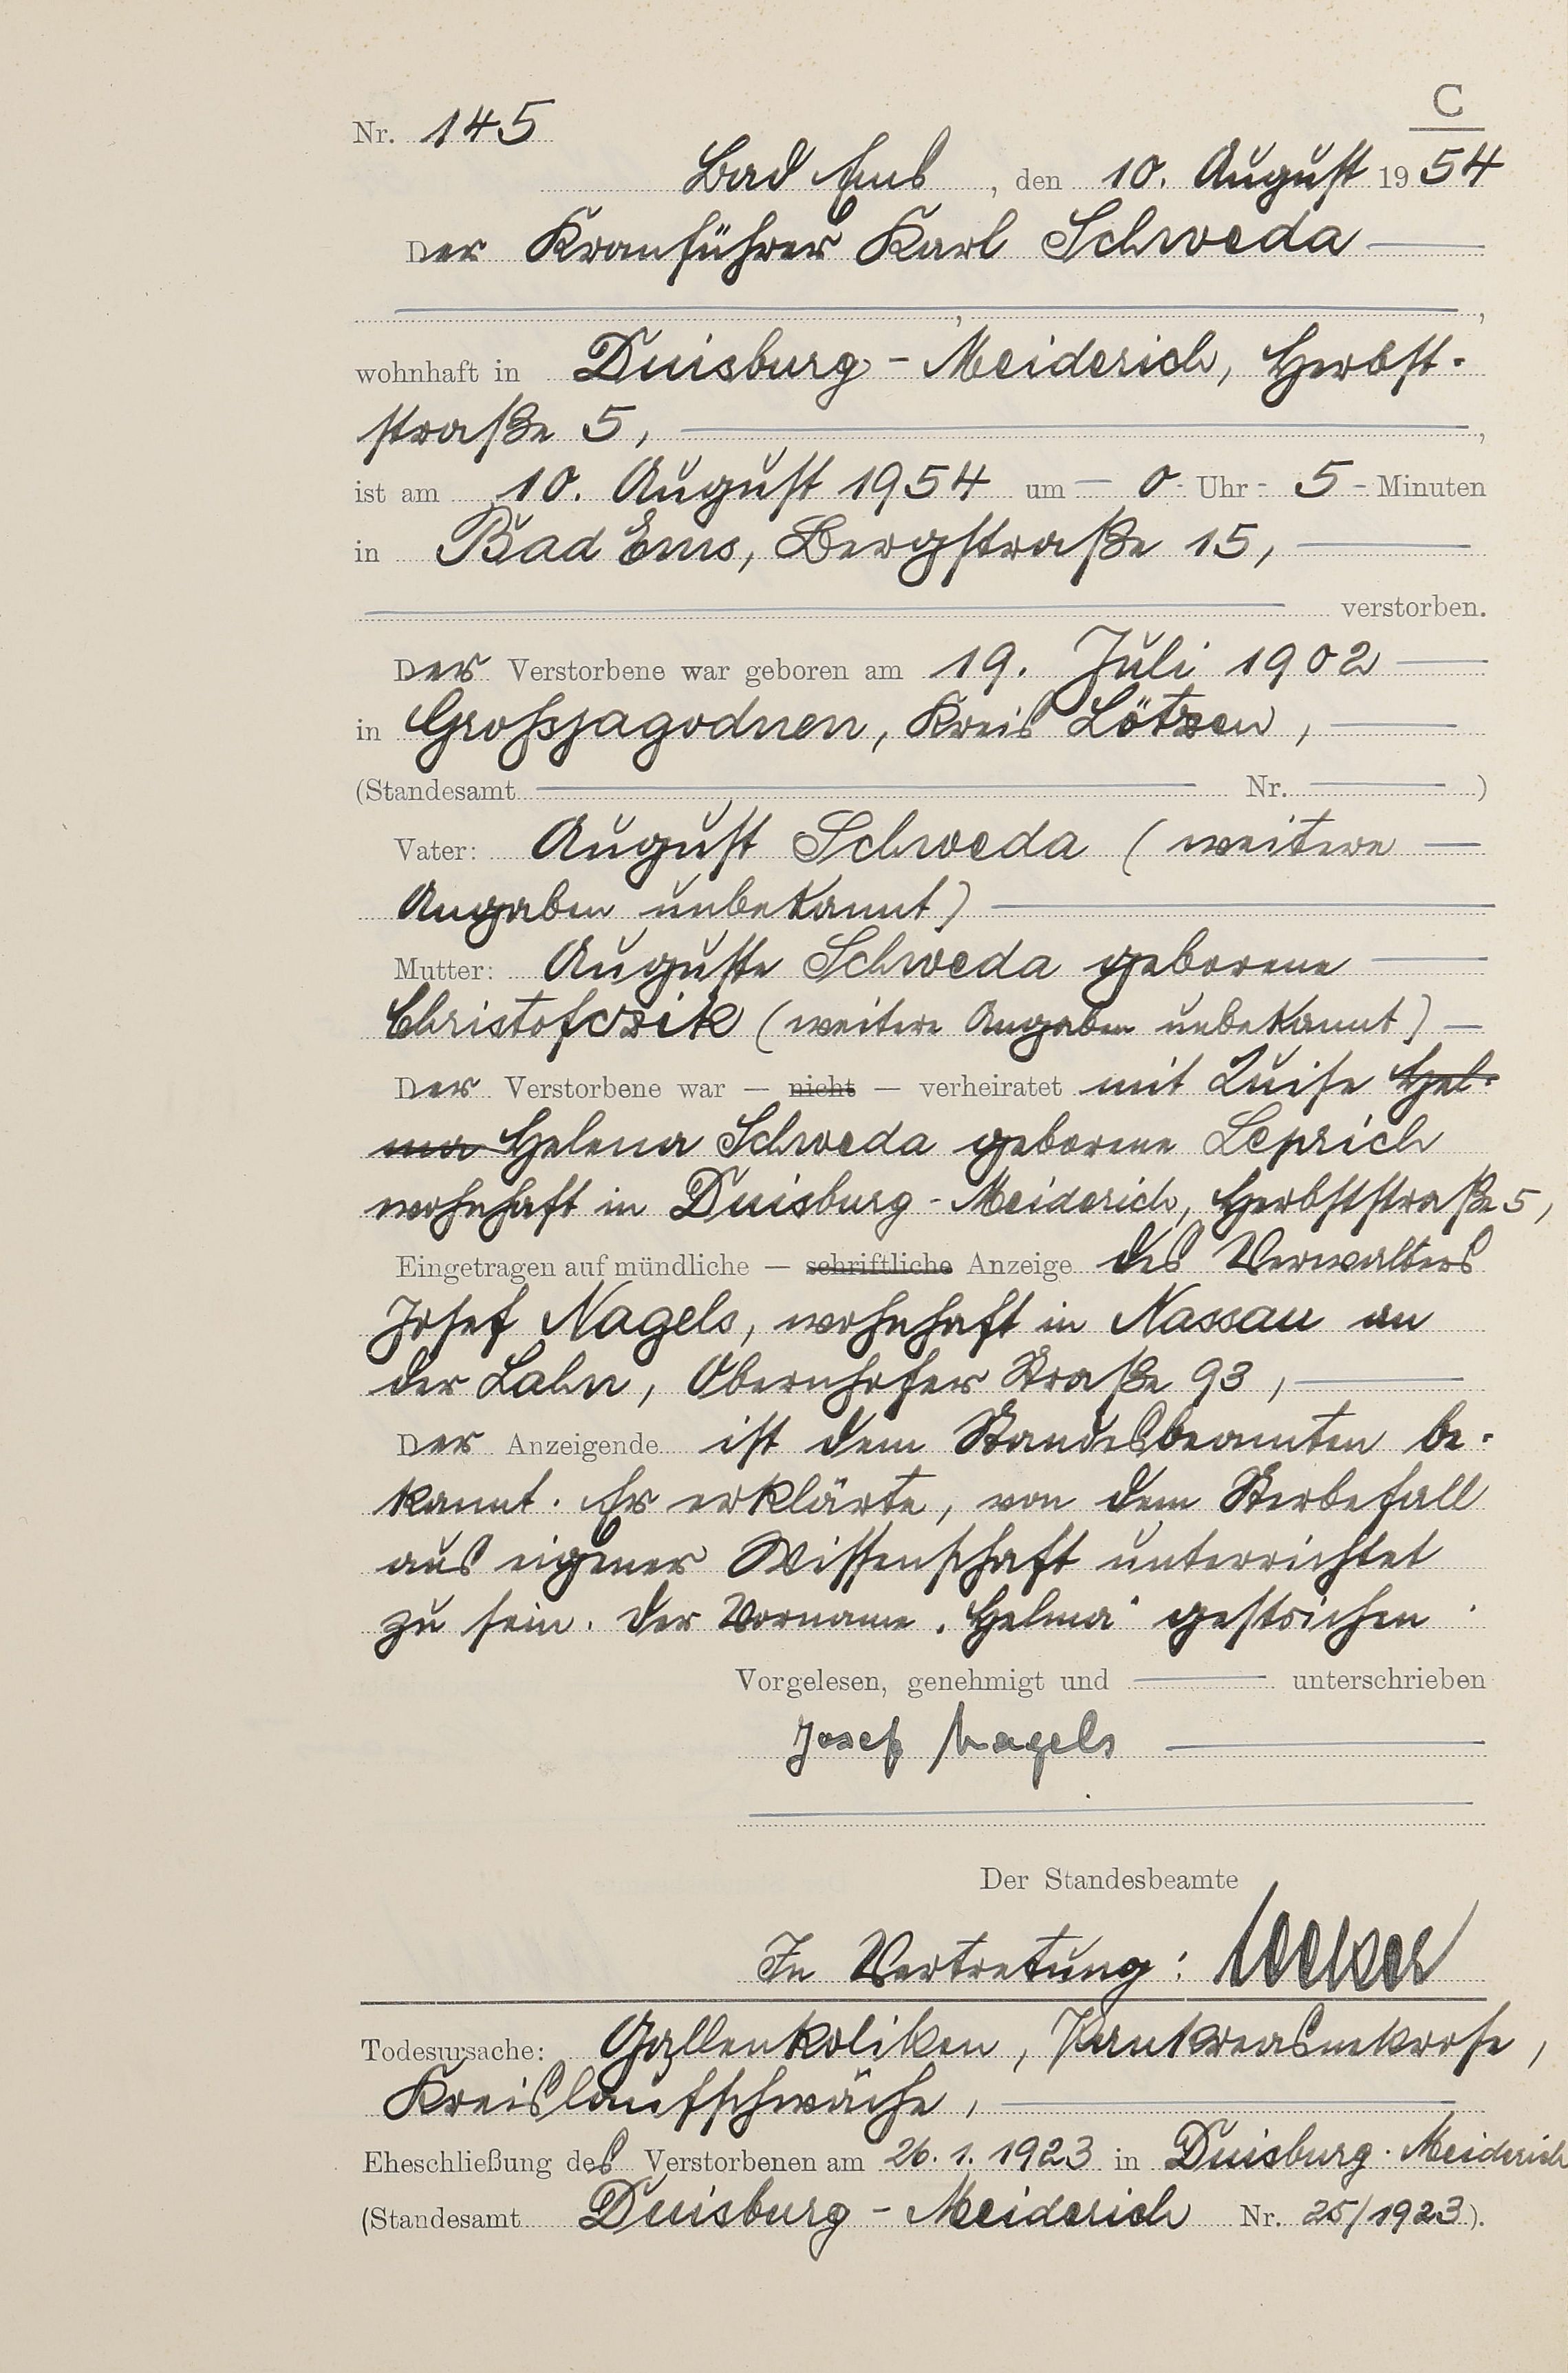 C
Nr. 145
Bad Ems, den 10. August 1954
Der Kranführer Karl Schweda
wohnhaft in Duisburg-Meiderich, Herbst-
straße 5,
ist am 10. August 1954 um 0 Uhr 5 Minuten
in Bad Ems, Bergstraße 15,
verstorben.
Der Verstorbene war geboren am 19. Juli 1902
in Großjagodnen, Kreis Lötzen,
(Standesamt Nr. )
Vater: August Schweda (weitere
Angaben unbekannt)
Mutter: Auguste Schweda geborene
Christofczik (weitere Angaben unbekannt)
Der Verstorbene war — nicht — verheiratet mit Luise Hel-
ma Helena Schweda geborene Leprich
wohnhaft in Duisburg-Meiderich, Herbststraße 5,
Eingetragen auf mündliche — schriftliche Anzeige des Verwalters
Josef Nagels, wohnhaft in Nassau an
der Lahn, Obernhofer Straße 93,
Der Anzeigende ist dem Standesbeamten be-
kannt. Er erklärte, von dem Sterbefall
aus eigener Wissenschaft unterrichtet
zu sein. Der Vorname "Helma" gestrichen.
Vorgelesen, genehmigt und unterschrieben
Josef Nagels
Der Standesbeamte
In Vertretung:
Todesursache: Gallenkoliken, Pankreasnekrose,
Kreislaufschwäche,
Eheschließung des Verstorbenen am 26.1.1923 in Duisburg-Meiderich
(Standesamt Duisburg-Meiderich Nr. 25/1923).